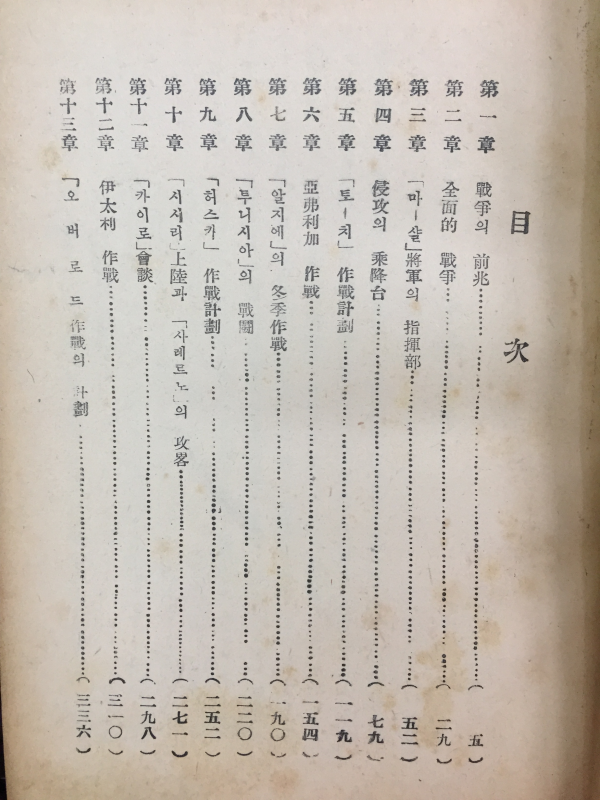 目次
第一章 戰爭의 前兆……………(五)
第二章 全面的 戰爭……………(二九)
第三章 「마ー샬」將軍의 指揮部……………(五二)
第四章 侵攻의 乘降台……………(七九)
第五章 「토ー치」作戰計劃……………(一一九)
第六章 亞弗利加 作戰……………(一五四)
第七章 「알지에」의 冬季作戰……………(一九〇)
第八章 「투니시아」의 戰鬪……………(二二〇)
第九章 「허스카」 作戰計劃……………(二五二)
第十章 「시시리」上陸과 「사레르노」의 攻畧……………(二七一)
第十一章 「카이로」會談……………(二九八)
第十二章 伊太利 作戰……………(三一〇)
第十三章 「오버로드 作戰의 計劃……………(三三六)